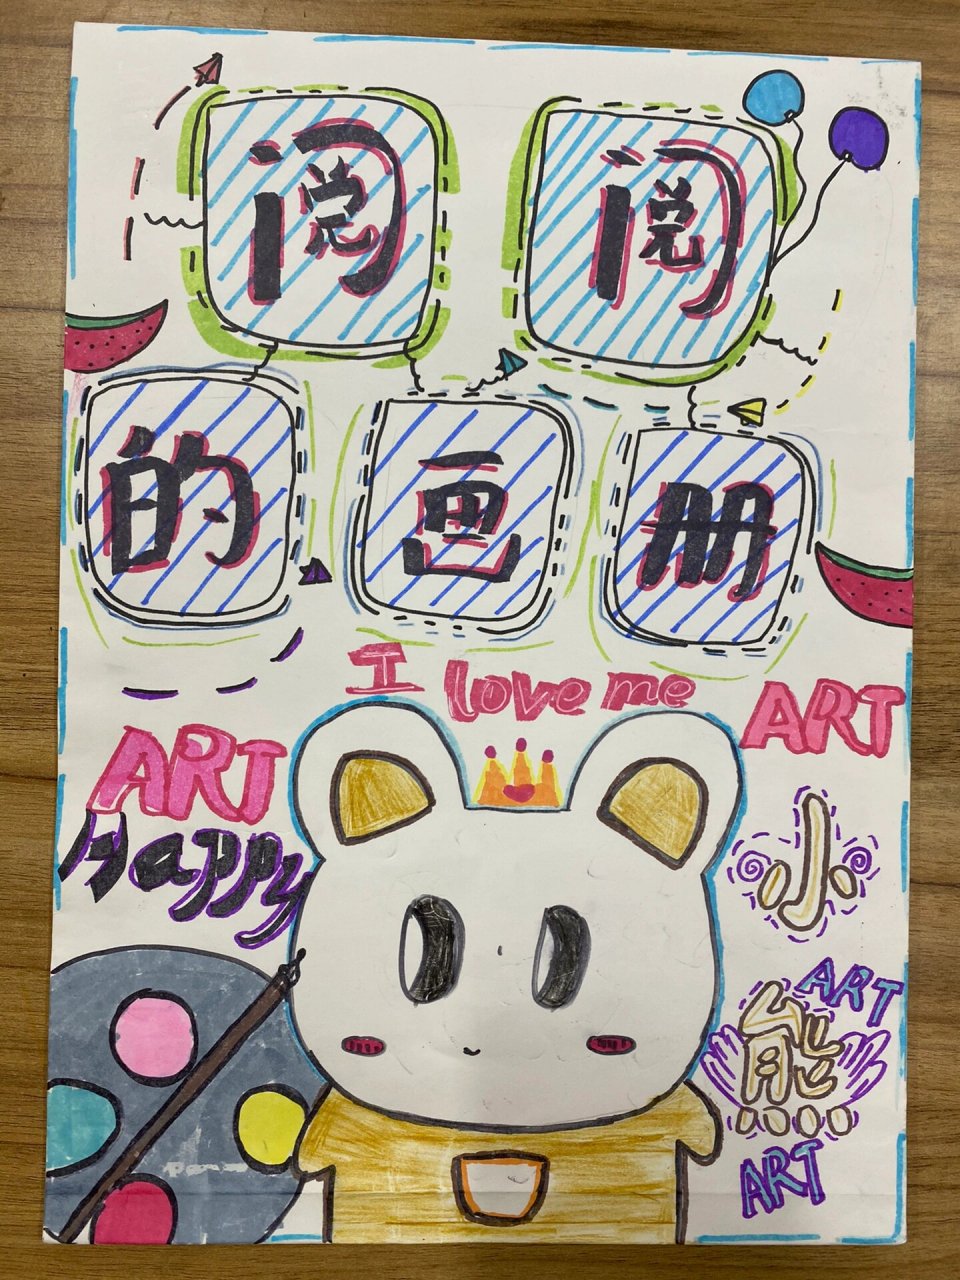 阅阅
的画册
I love me
ART
ART
Happy
小
ART
熊
ART